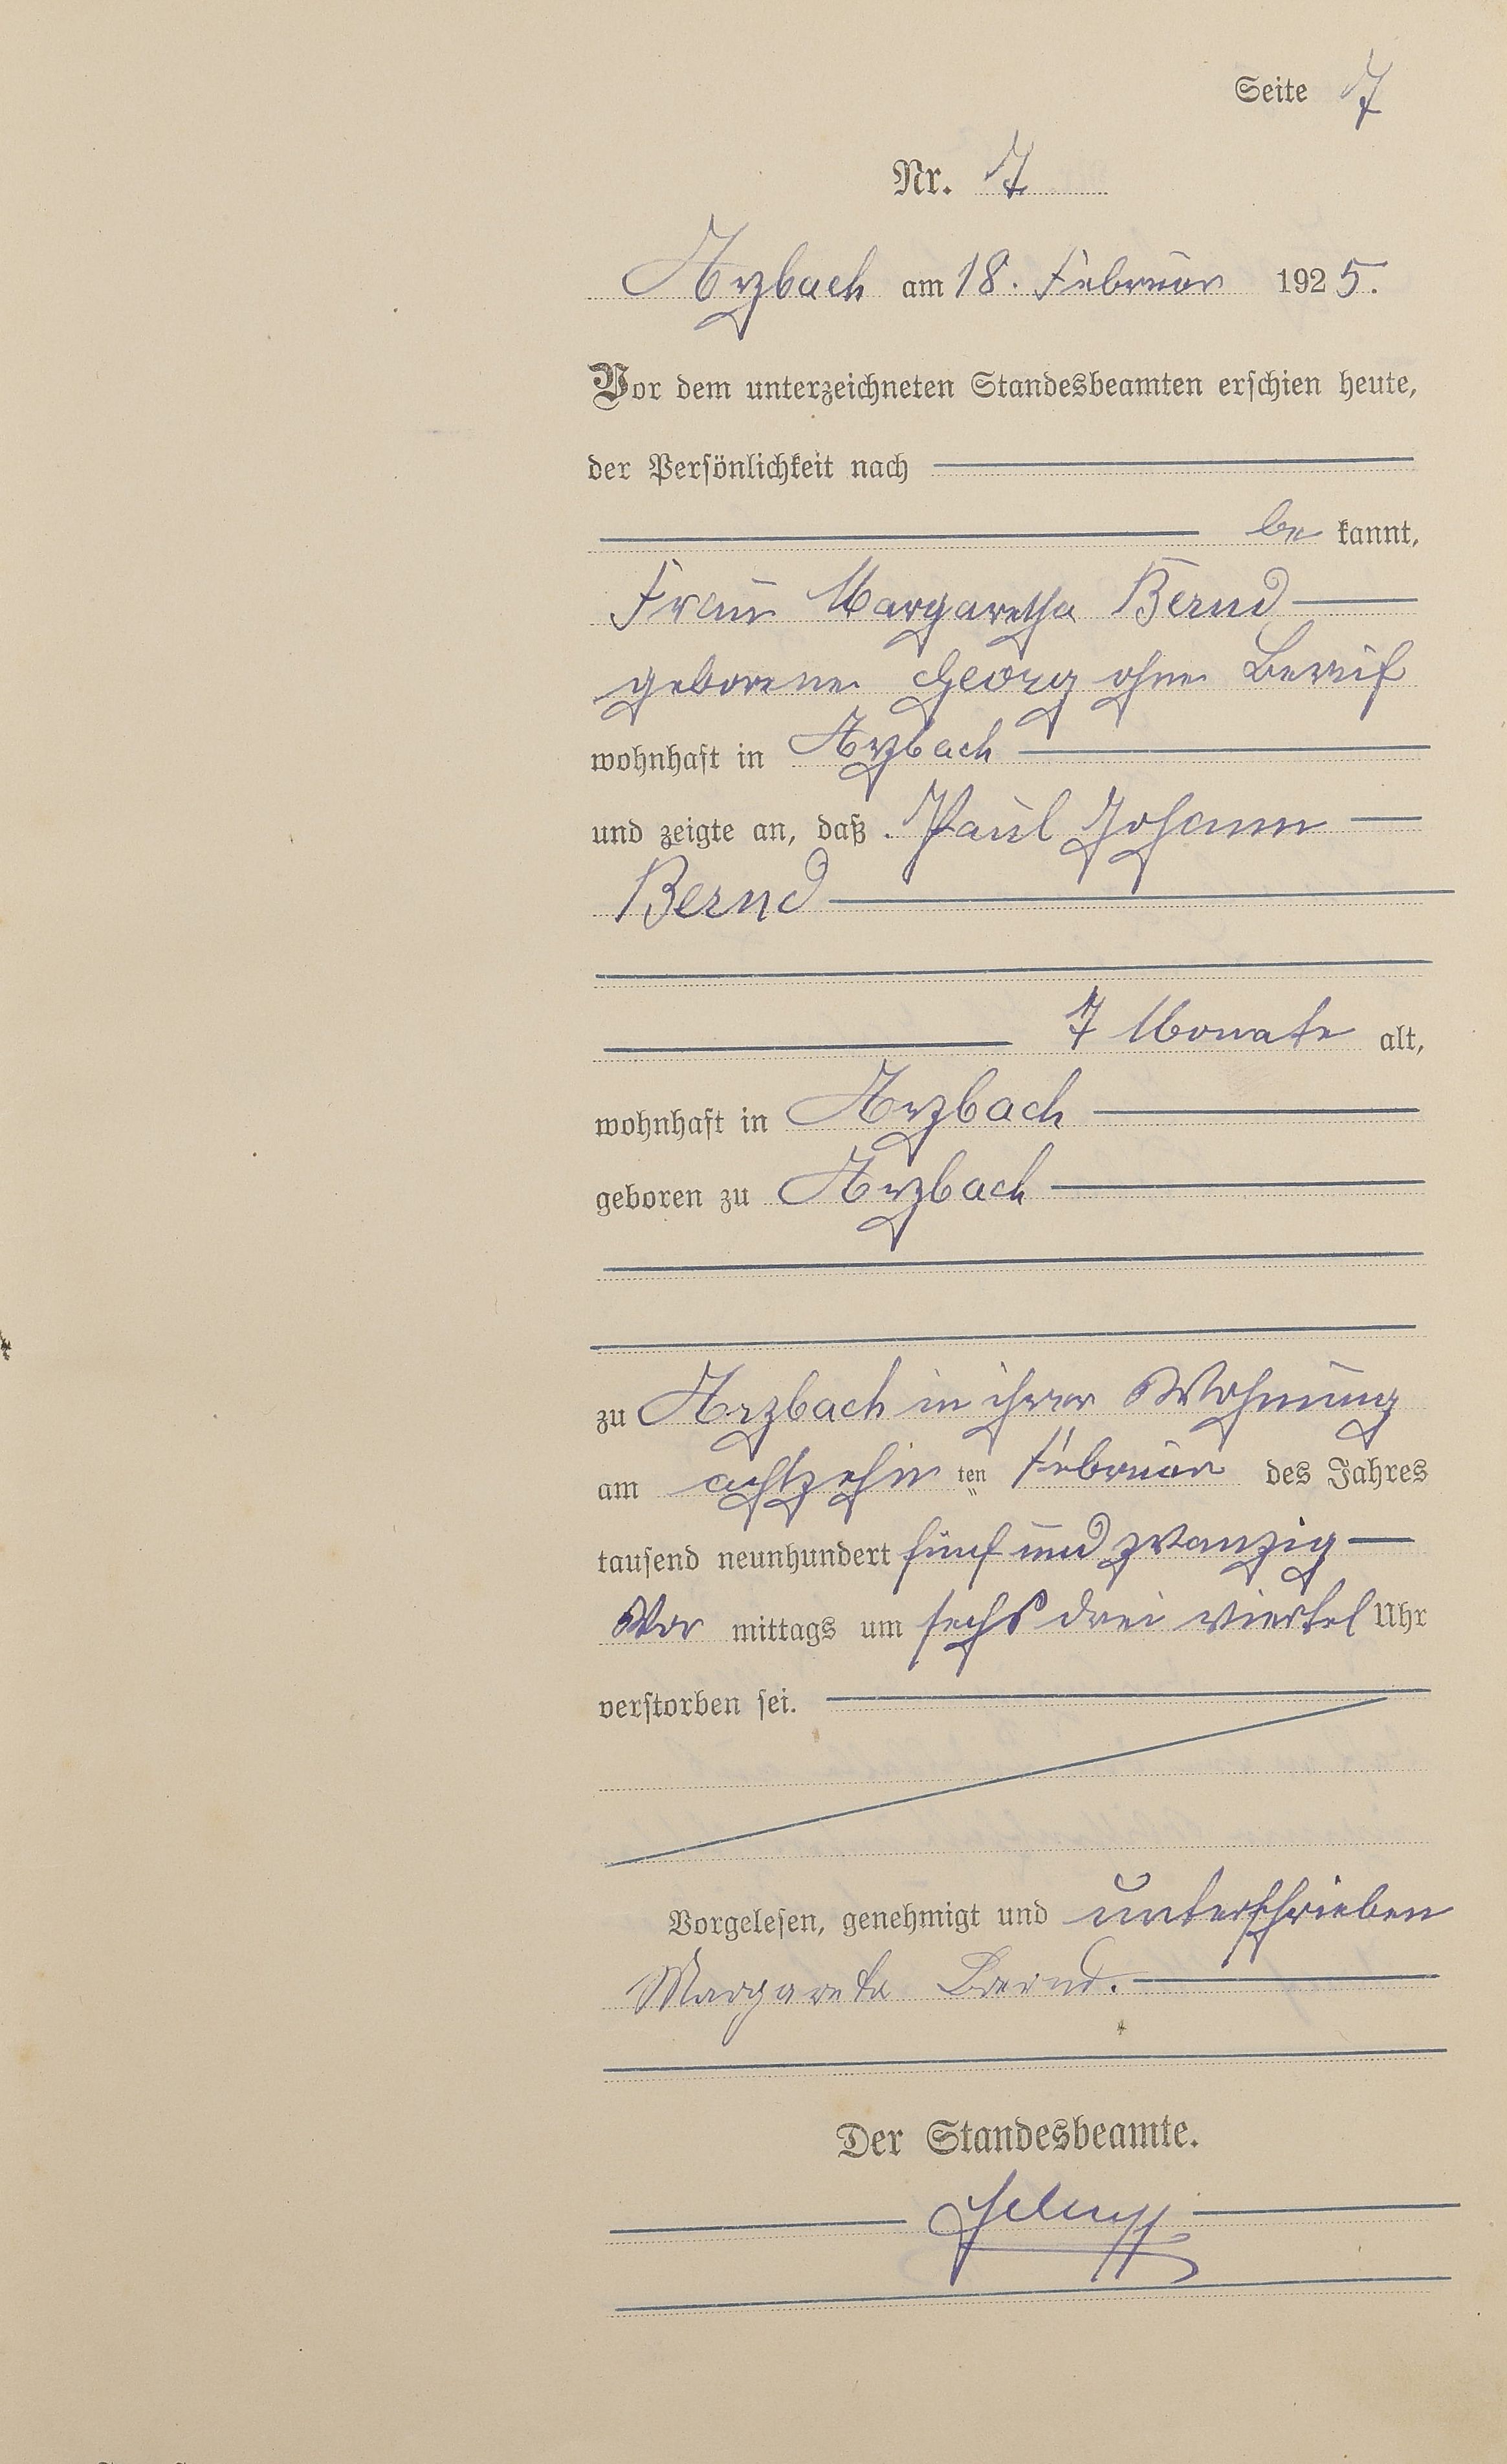 Seite 7
Nr. 7
Arzbach am 18. Februar 1925.
Vor dem unterzeichneten Standesbeamten erschien heute,
der Persönlichkeit nach
be kannt,
Frau Margaretha Bernd
geborene Georg ohne Beruf
wohnhaft in Arzbach
und zeigte an, daß Paul Johann
Bernd
7 Monate alt,
wohnhaft in Arzbach
geboren zu Arzbach
zu Arzbach in ihrer Wohnung
am achtzehn ten Februar des Jahres
tausend neunhundert fünf und zwanzig
Vor mittags um sechs drei viertel Uhr
verstorben sei.
Vorgelesen, genehmigt und unterschrieben
Margareta Bernd.
Der Standesbeamte.